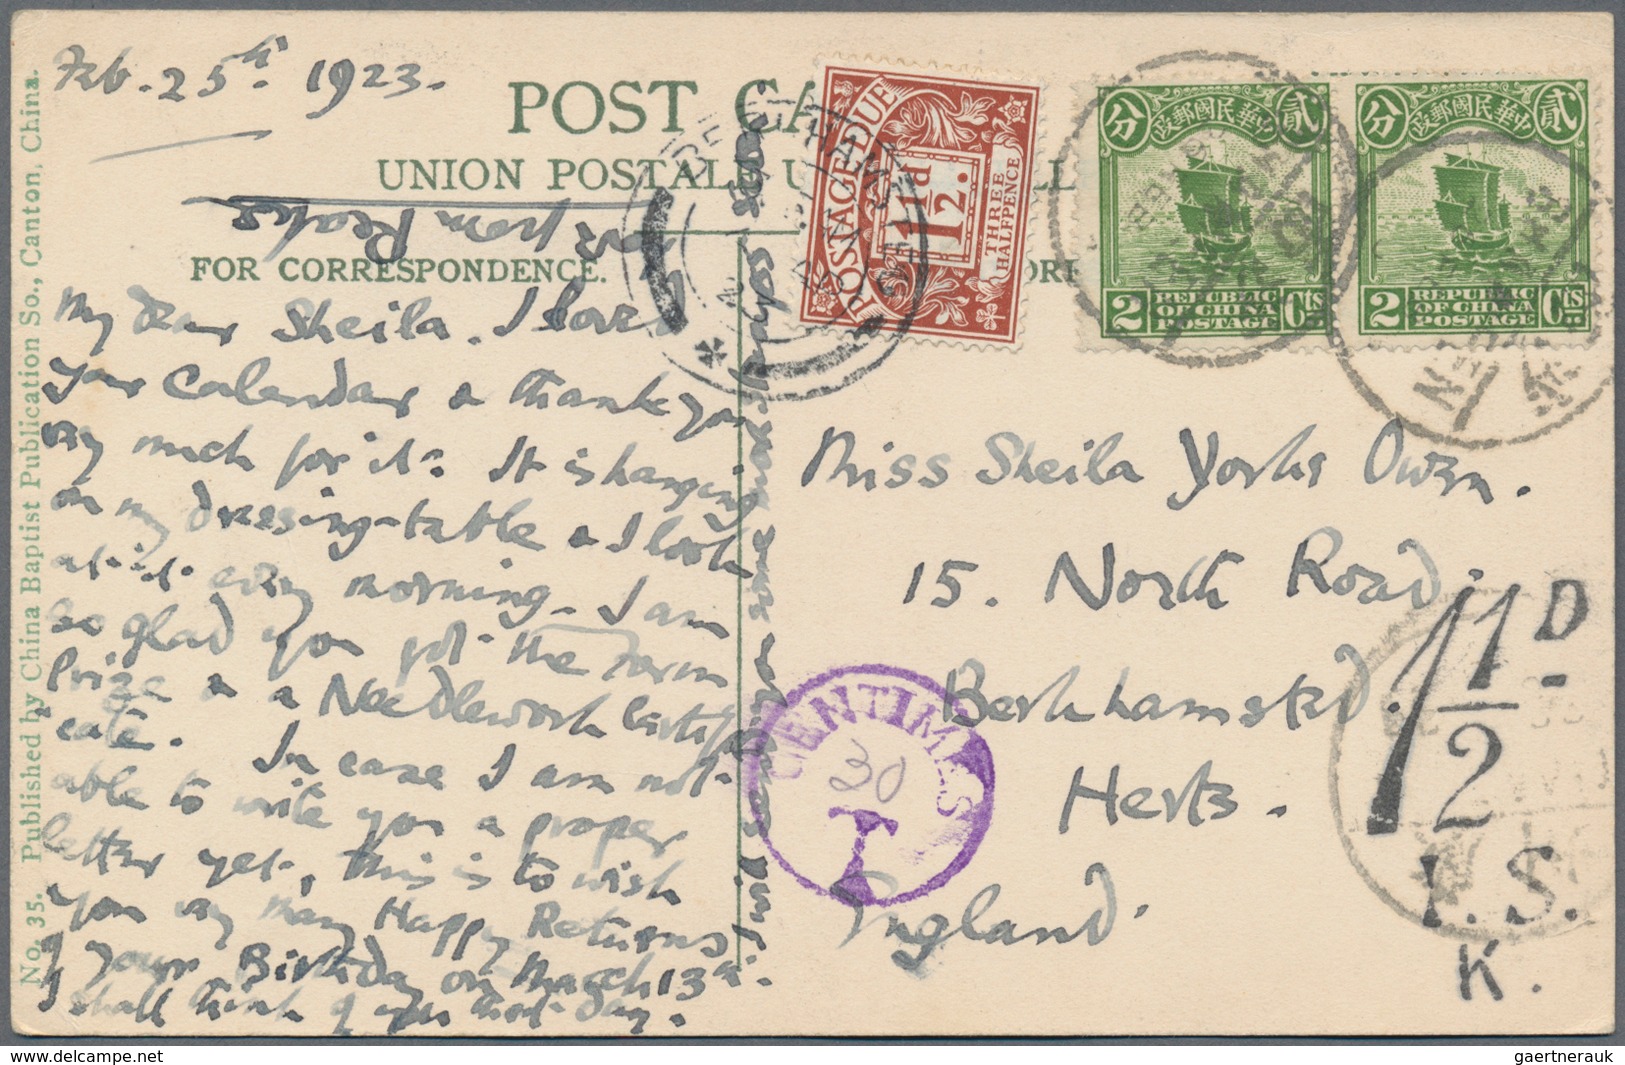 Feb. 25th 1923.
POST CA
UNION POSTALE U
FOR CORRESPONDENCE.
from
My dear Sheila. I love
your Calendar & thank you
very much for it. It is hanging
on my dressing-table & I look
at it every morning. I am
so glad you got the Form
Prize & a Needlework Certifi
cate. In case I am not
able to write you a proper
letter yet, this is to wish
you very many Happy Returns
of your Birthday on March 13th.
I shall think of you that day.
I will send you some more
soon.
No. 35. Published by China Baptist Publication So., Canton, China.
POSTAGE DUE
1½d.
THREE
HALFPENCE
BERKHAMS
分 中華民國郵政 貳
2 REPUBLIC OF CHINA POSTAGE Cts
分 中華民國郵政 貳
2 REPUBLIC OF CHINA POSTAGE Cts
Miss Sheila Yorke Owen.
15. North Road.
Berkhamsted.
Herts.
England.
CENTIMES
30
T
1½D
I.S.
K.
www.delcampe.net
gaertnerauk